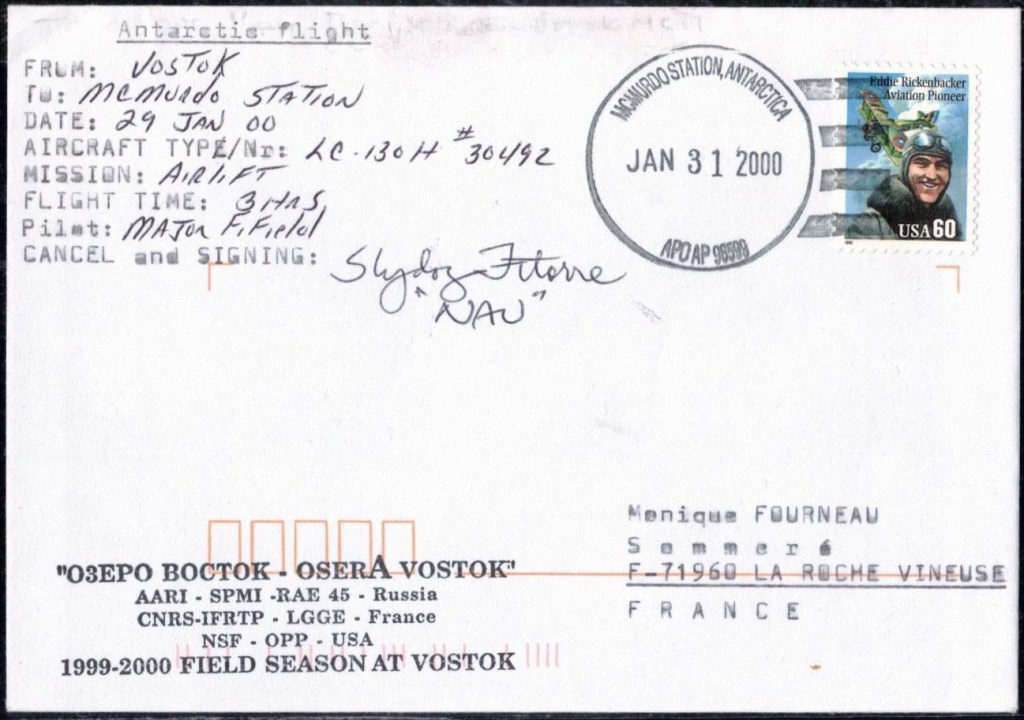 Antarctic flight
FROM: VOSTOK
TO: MCMURDO STATION
DATE: 29 JAN 00
AIRCRAFT TYPE/Nr: LC-130H #30492
MISSION: AIRLIFT
FLIGHT TIME: 3 HRS
Pilot: MAJOR Fifield
CANCEL and SIGNING:
"NAV"
MCMURDO STATION, ANTARCTICA
JAN 31 2000
APO AP 96599
Eddie Rickenbacker
Aviation Pioneer
USA 60
Monique FOURNEAU
Sommeré
F-71960 LA ROCHE VINEUSE
FRANCE
"ОЗЕРО ВОСТОК - OSERA VOSTOK"
AARI - SPMI -RAE 45 - Russia
CNRS-IFRTP - LGGE - France
NSF - OPP - USA
1999-2000 FIELD SEASON AT VOSTOK